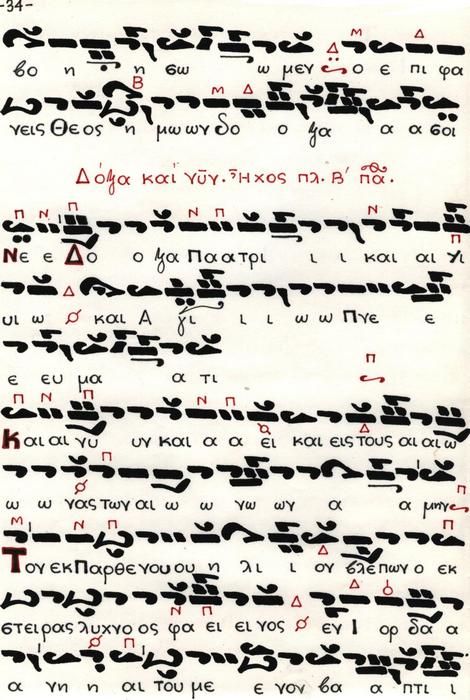 -34-
βο η η σω ω μεν ο ε πι φα
νεις Θε ος η μω ων δο ο ξα α α σοι
Δόξα καὶ νῦν. Ἦχος πλ. Β΄ Πα.
Νε ε Δο ο ξα Πα α τρι ι ι και αι Υι
υι ω και Α γι ι ι ω ω Πνε ε
ε ευ μα α τι
Και αι νυ υν και α α ει και εις τους αι αι ω
ω ω νας των αι ω ω νω ων α α μην
Τον εκ Παρθενου ου η λι ι ον βλεπων ο εκ
στειρας λυχνο ος φα ει ει νος εν Ι ορ δα α
α νη η αι του με ε νον βα α πτι ι